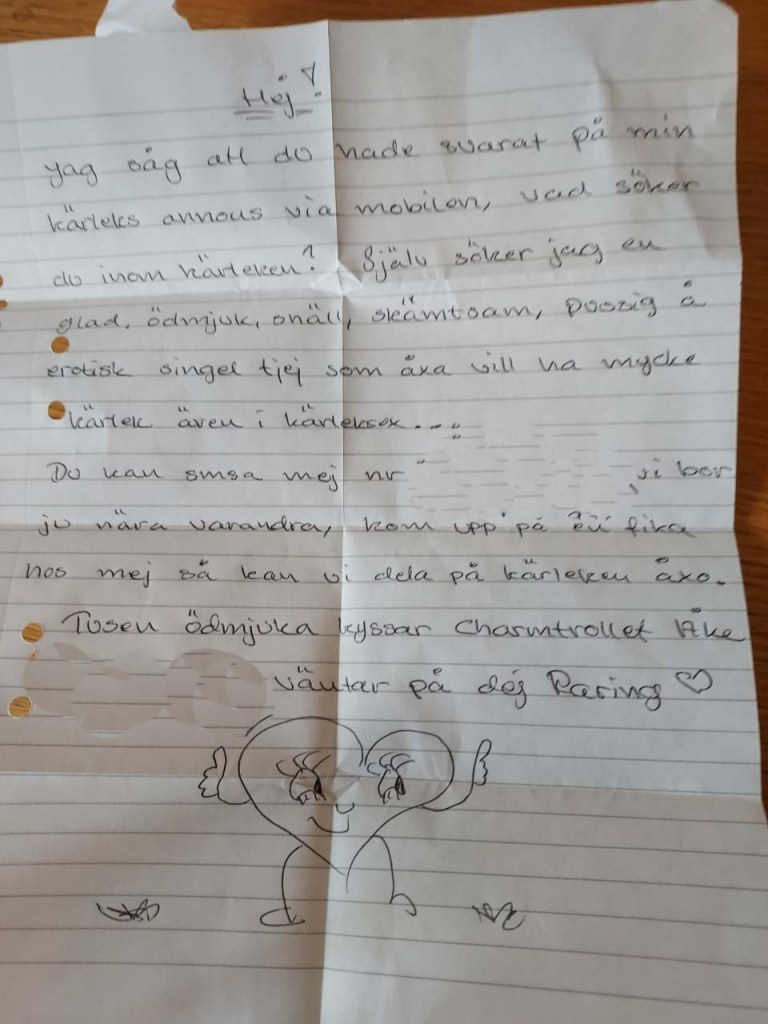 Hej!
yag såg att du hade svarat på min
kärleks annous via mobilen, vad söker
du inom kärleken? Själv söker jag en
glad, ödmjuk, snäll, skämtsam, pussig å
erotisk singel tjej som åxa vill ha mycke
kärlek även i kärleksex...
Du kan smsa mej nr vi bor
ju nära varandra, kom upp på fika
hos mej så kan vi dela på kärleken åxo.
Tusen ödmjuka kyssar Charmtrollet Åke
väntar på dej Raring ♡